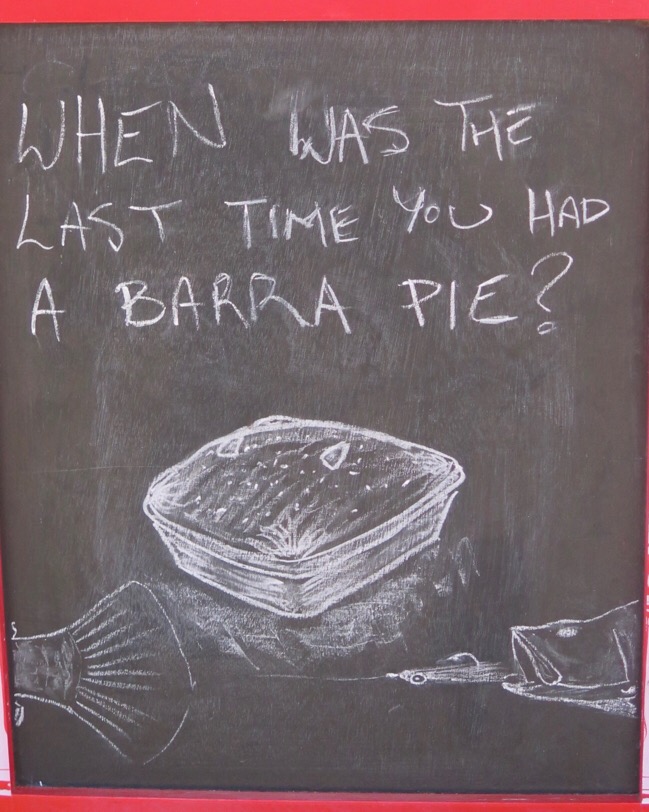 WHEN WAS THE
LAST TIME YOU HAD
A BARRA PIE?